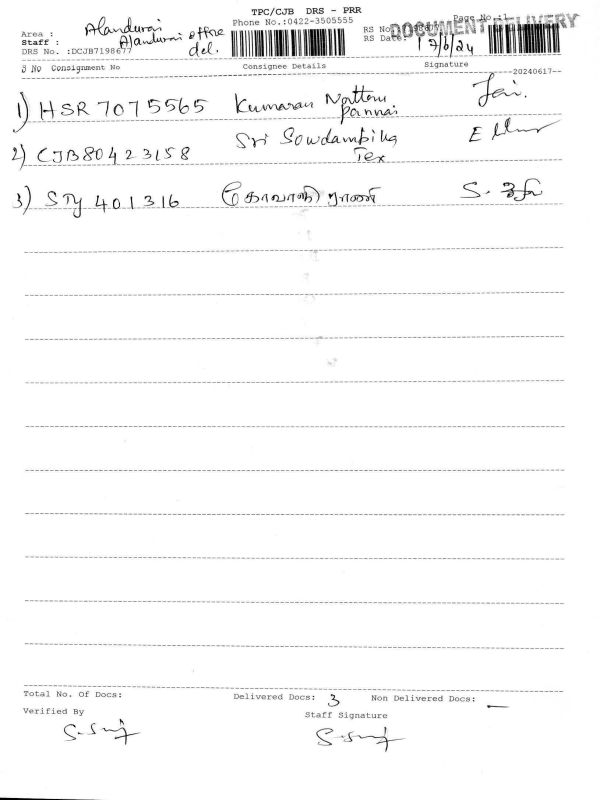 TPC/CJB DRS - PRR
Phone No.:0422-3505555
Page No.:1
DOCUMENT DELIVERY
Area : Alandurai
Staff : Alandurai office del.
RS No
RS Date: 17/6/24
DRS No. :DCJB7198677
S No Consignment No Consignee Details Signature
20240617
1) HSR 7075565 Kumaran Nattu Pannai Jai.
2) CJB80423158 Sri Sowdambika Tex
3) STY 401316 கோவாளி ராணி
Total No. Of Docs: Delivered Docs: 3 Non Delivered Docs: —
Verified By Staff Signature